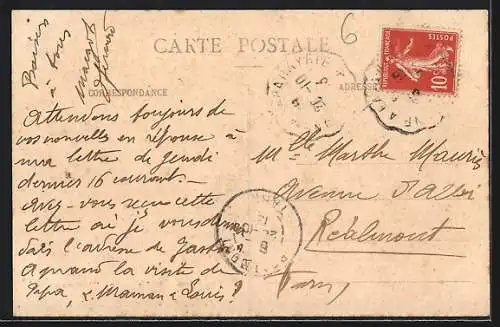 CARTE POSTALE
CORRESPONDANCE
ADRESSE
6
Baisers
à tous
Margot
POSTES
REPUBLIQUE FRANÇAISE
10c
Attendons toujours de
vos nouvelles en réponse à
ma lettre de jeudi
dernier 16 courant.-
Avez-vous reçu cette
lettre où je vous
dans l'adresse de
A quand la visite de
Papa, & Maman & Louis?
Mlle Marthe Mauriès
Avenue d'Albi
Réalmont
Tarn